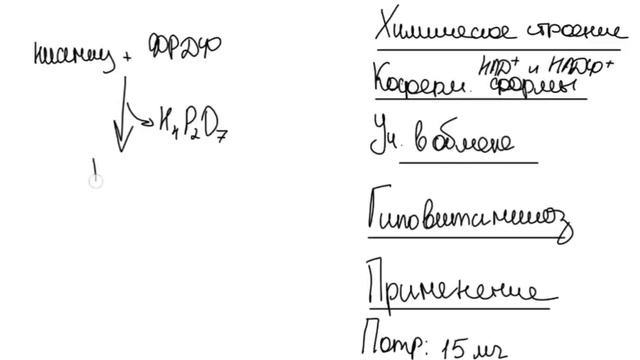 ниацин + ФРДФ
H4P2O7
Химическое строение
НАД+ и НАДФ+
Коферм. формы
Уч. в обмене
Гиповитаминоз
Применение
Потр: 15 мг